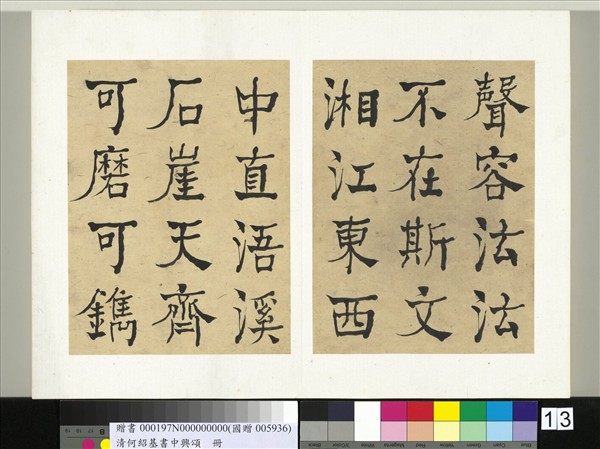 聲容法法
不在斯文
湘江東西
中直浯溪
石崖天齊
可磨可鐫
贈書 000197N000000000(國贈 005936)
清何紹基書中興頌 冊
13